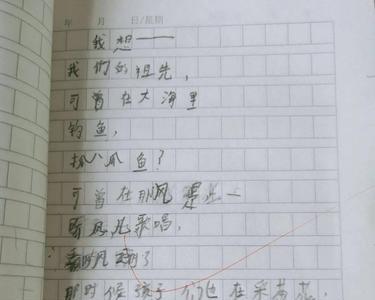 年 月 日/星期
我想——
我们的祖先，
可曾在大海里
钓鱼，
扒爪鱼？
可曾在那风
听风儿歌唱，
风 了
那时候孩子们也在采